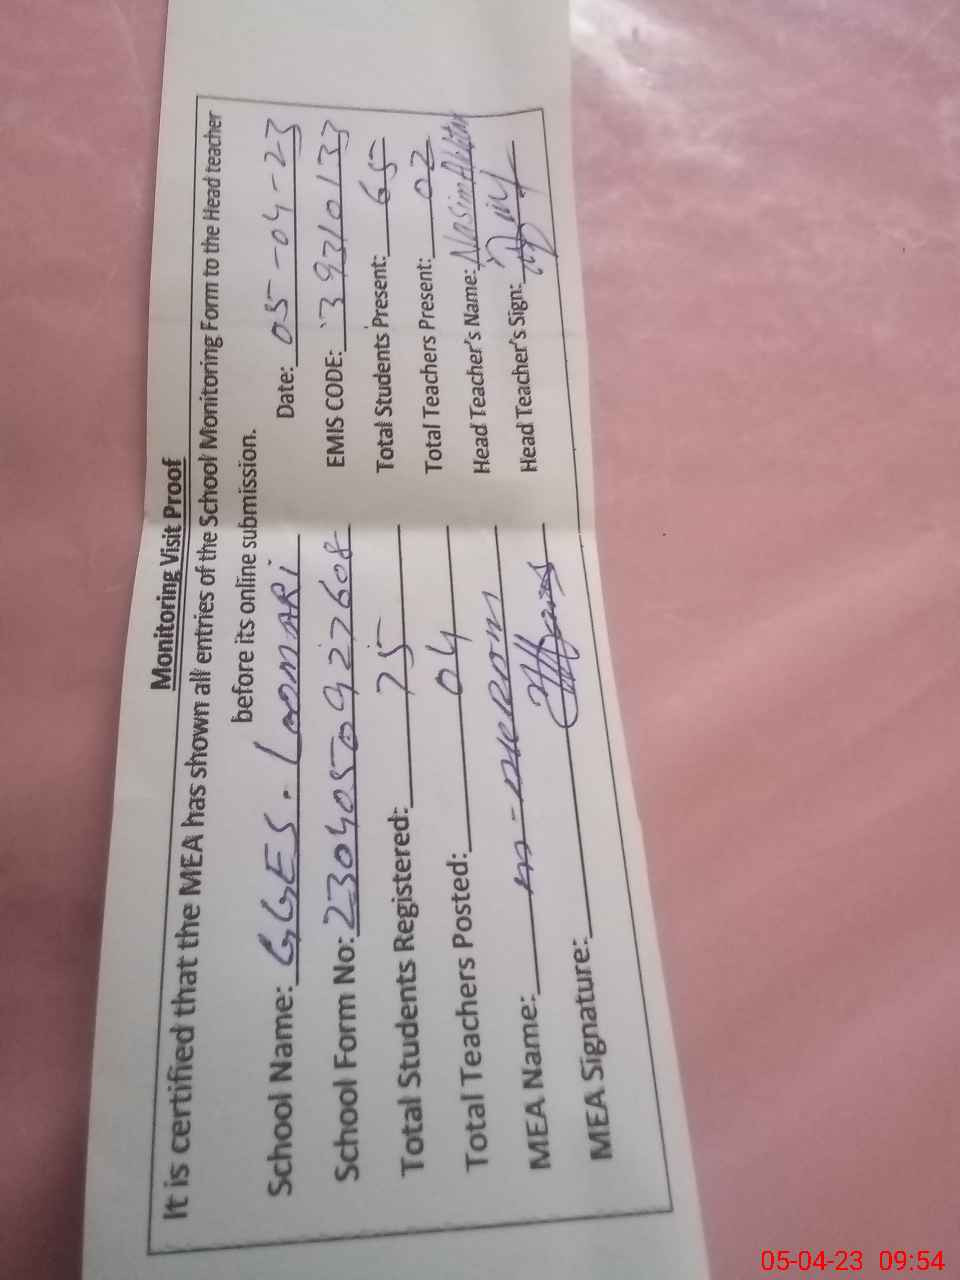 Monitoring Visit Proof
It is certified that the MEA has shown all entries of the School Monitoring Form to the Head teacher
before its online submission.
School Name: GGES. LOOMARI Date: 05-04-23
School Form No: 2304050927608 EMIS CODE: 39310133
Total Students Registered: 75 Total Students Present: 65
Total Teachers Posted: 04 Total Teachers Present: 02
MEA Name: m- Head Teacher's Name: Nasim Akhtar
MEA Signature: Head Teacher's Sign:
05-04-23 09:54